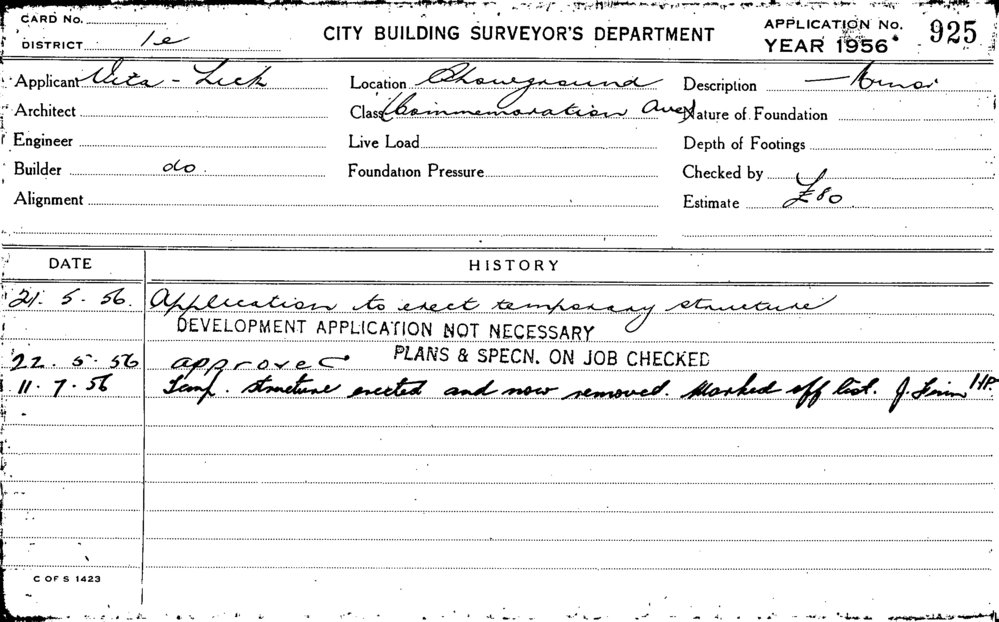 CARD No.
DISTRICT 1e
CITY BUILDING SURVEYOR'S DEPARTMENT
APPLICATION No. 925
YEAR 1956
Applicant Vita - Lick Location Showground Description Minor
Architect Class (Commemoration Ave) Nature of Foundation
Engineer Live Load Depth of Footings
Builder do. Foundation Pressure Checked by
Alignment Estimate £80
DATE HISTORY
21. 5. 56. Application to erect temporary structure
DEVELOPMENT APPLICATION NOT NECESSARY
PLANS & SPECN. ON JOB CHECKED
22. 5. 56 approved
11. 7. 56 Temp. structure erected and now removed. Marked off list. J.
C OF S 1423